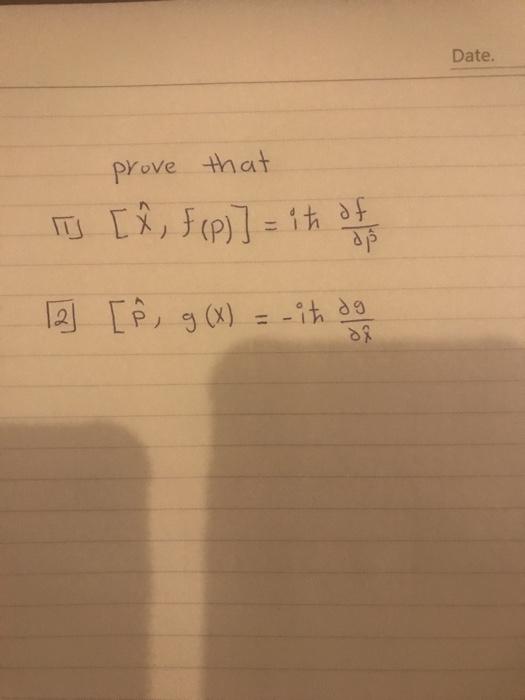 Date.
prove that
[1] [x̂, f(p)] = iħ ∂f/∂p̂
[2] [p̂, g(x) = -iħ ∂g/∂x̂